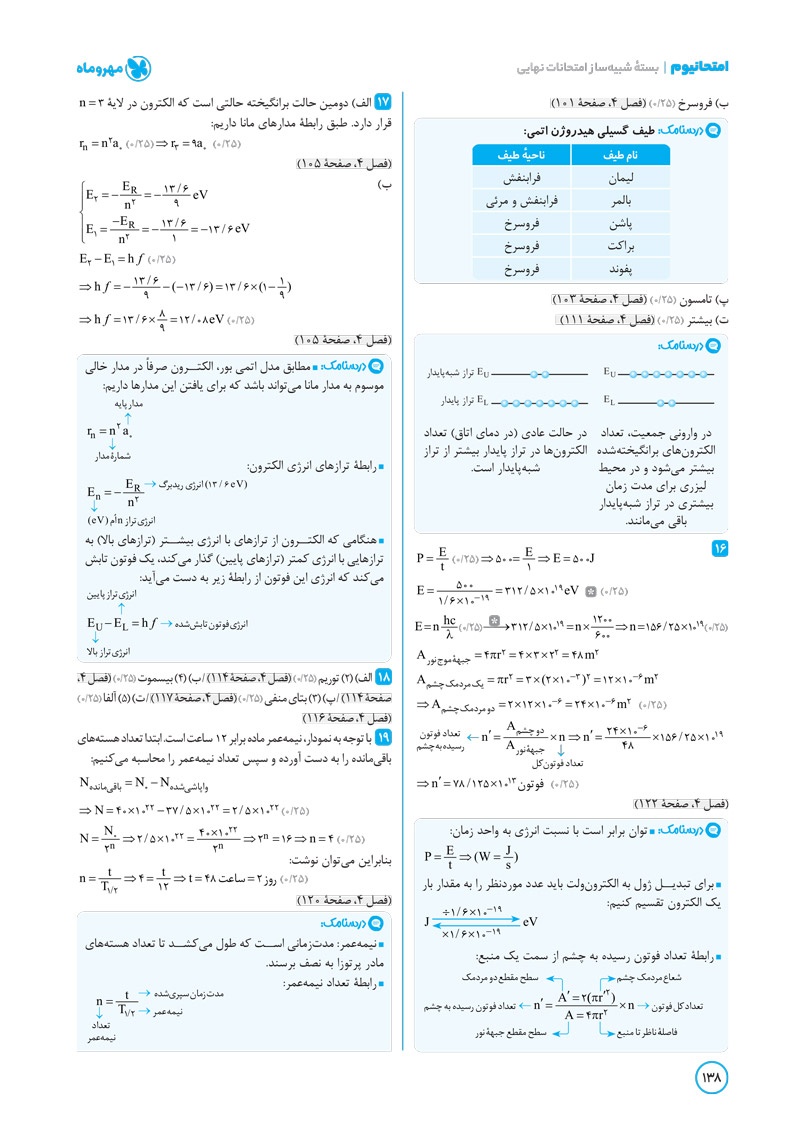 امتحانیوم | بستهٔ شبیه‌ساز امتحانات نهایی
مهروماه
ب) فروسرخ (۰/۲۵) (فصل ۴، صفحهٔ ۱۰۱)
درسنامک: طیف گسیلی هیدروژن اتمی:
نام طیف ناحیهٔ طیف
لیمان فرابنفش
بالمر فرابنفش و مرئی
پاشن فروسرخ
براکت فروسرخ
پفوند فروسرخ
پ) تامسون (۰/۲۵) (فصل ۴، صفحهٔ ۱۰۳)
ت) بیشتر (۰/۲۵) (فصل ۴، صفحهٔ ۱۱۱)
درسنامک:
E_U تراز شبه‌پایدار E_U
E_L تراز پایدار E_L
در وارونی جمعیت، تعداد
الکترون‌های برانگیخته‌شده
بیشتر می‌شود و در محیط
لیزری برای مدت زمان
بیشتری در تراز شبه‌پایدار
باقی می‌مانند.
در حالت عادی (در دمای اتاق) تعداد
الکترون‌ها در تراز پایدار بیشتر از تراز
شبه‌پایدار است.
۱۶
P = E/t (۰/۲۵) ⇒ ۵۰۰ = E/۱ ⇒ E = ۵۰۰J
E = ۵۰۰/(۱/۶×۱۰^−۱۹) = ۳۱۲/۵×۱۰^۱۹ eV * (۰/۲۵)
E = n hc/λ (۰/۲۵) —*→ ۳۱۲/۵×۱۰^۱۹ = n × ۱۲۰۰/۶۰۰ ⇒ n = ۱۵۶/۲۵×۱۰^۱۹ (۰/۲۵)
A جبههٔ موج نور = ۴πr^۲ = ۴×۳×۲^۲ = ۴۸ m^۲
A یک مردمک چشم = πr^۲ = ۳×(۲×۱۰^−۳)^۲ = ۱۲×۱۰^−۶ m^۲
⇒ A دو مردمک چشم = ۲×۱۲×۱۰^−۶ = ۲۴×۱۰^−۶ m^۲ (۰/۲۵)
تعداد فوتون رسیده به چشم ← n′ = A دو چشم / A جبههٔ نور × n ⇒ n′ = (۲۴×۱۰^−۶)/۴۸ × ۱۵۶/۲۵×۱۰^۱۹
↓ تعداد فوتون کل
⇒ n′ = ۷۸/۱۲۵×۱۰^۱۳ فوتون (۰/۲۵)
(فصل ۴، صفحهٔ ۱۲۲)
درسنامک: ▪ توان برابر است با نسبت انرژی به واحد زمان:
P = E/t ⇒ (W = J/s)
▪ برای تبدیل ژول به الکترون‌ولت باید عدد موردنظر را به مقدار بار
یک الکترون تقسیم کنیم:
÷۱/۶×۱۰^−۱۹
J eV
×۱/۶×۱۰^−۱۹
▪ رابطهٔ تعداد فوتون رسیده به چشم از سمت یک منبع:
سطح مقطع دو مردمک شعاع مردمک چشم
تعداد فوتون رسیده به چشم ← n′ = (A′ = ۲(πr′^۲))/(A = ۴πr^۲) × n → تعداد کل فوتون
سطح مقطع جبههٔ نور فاصلهٔ ناظر تا منبع
۱۷ الف) دومین حالت برانگیخته حالتی است که الکترون در لایهٔ n = ۳
قرار دارد. طبق رابطهٔ مدارهای مانا داریم:
r_n = n^۲a_۰ (۰/۲۵) ⇒ r_۳ = ۹a_۰ (۰/۲۵)
(فصل ۴، صفحهٔ ۱۰۵)
ب)
E_۲ = −E_R/n^۲ = −۱۳/۶/۹ eV
E_۱ = −E_R/n^۲ = −۱۳/۶/۱ = −۱۳/۶ eV
E_۲ − E_۱ = h f (۰/۲۵)
⇒ h f = −۱۳/۶/۹ − (−۱۳/۶) = ۱۳/۶×(۱−۱/۹)
⇒ h f = ۱۳/۶×۸/۹ = ۱۲/۰۸eV (۰/۲۵)
(فصل ۴، صفحهٔ ۱۰۵)
درسنامک: ▪ مطابق مدل اتمی بور، الکترون صرفاً در مدار خالی
موسوم به مدار مانا می‌تواند باشد که برای یافتن این مدارها داریم:
مدار پایه
↑
r_n = n^۲ a_۰
↓
شمارهٔ مدار
▪ رابطهٔ ترازهای انرژی الکترون:
E_n = −E_R/n^۲ → انرژی ریدبرگ (۱۳/۶ eV)
↓
انرژی تراز nاُم (eV)
▪ هنگامی که الکترون از ترازهای با انرژی بیشتر (ترازهای بالا) به
ترازهایی با انرژی کمتر (ترازهای پایین) گذار می‌کند، یک فوتون تابش
می‌کند که انرژی این فوتون از رابطهٔ زیر به دست می‌آید:
انرژی تراز پایین
↑
E_U − E_L = h f → انرژی فوتون تابش‌شده
↓
انرژی تراز بالا
۱۸ الف) (۲) توریم (۰/۲۵) (فصل ۴، صفحهٔ ۱۱۴) / ب) (۴) بیسموت (۰/۲۵) (فصل ۴،
صفحهٔ ۱۱۴) / پ) (۳) بتای منفی (۰/۲۵) (فصل ۴، صفحهٔ ۱۱۷) / ت) (۵) آلفا (۰/۲۵)
(فصل ۴، صفحهٔ ۱۱۶)
۱۹ با توجه به نمودار، نیمه‌عمر ماده برابر ۱۲ ساعت است. ابتدا تعداد هسته‌های
باقی‌مانده را به دست آورده و سپس تعداد نیمه‌عمر را محاسبه می‌کنیم:
N باقی‌مانده = N_۰ − N واپاشی‌شده
⇒ N = ۴۰×۱۰^۲۲ − ۳۷/۵×۱۰^۲۲ = ۲/۵×۱۰^۲۲ (۰/۲۵)
N = N_۰/۲^n ⇒ ۲/۵×۱۰^۲۲ = (۴۰×۱۰^۲۲)/۲^n ⇒ ۲^n = ۱۶ ⇒ n = ۴ (۰/۲۵)
بنابراین می‌توان نوشت:
n = t/T_۱/۲ ⇒ ۴ = t/۱۲ ⇒ t = ۴۸ ساعت = ۲ روز (۰/۲۵)
(فصل ۴، صفحهٔ ۱۲۰)
درسنامک:
▪ نیمه‌عمر: مدت‌زمانی است که طول می‌کشد تا تعداد هسته‌های
مادر پرتوزا به نصف برسند.
▪ رابطهٔ تعداد نیمه‌عمر:
n = t/T_۱/۲ → مدت زمان سپری‌شده
→ نیمه‌عمر
↓
تعداد
نیمه‌عمر
۱۳۸